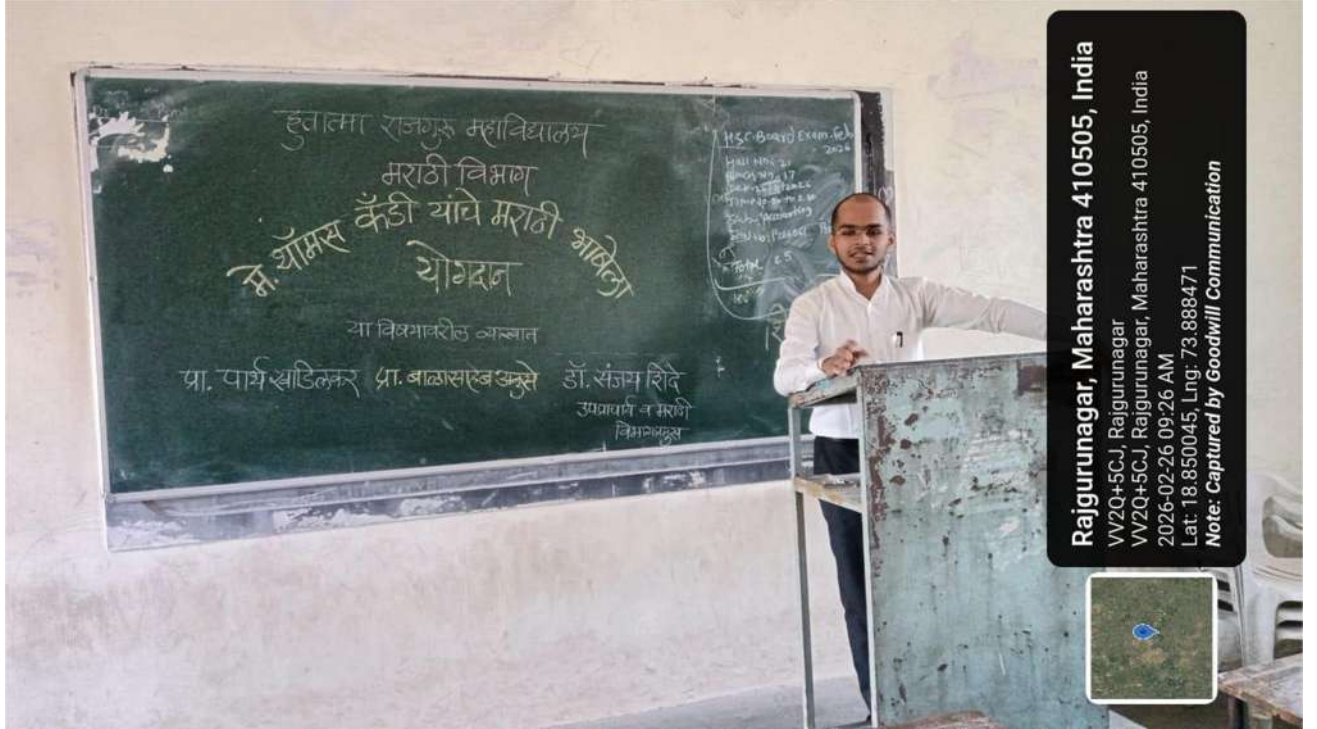 हुतात्मा राजगुरू महाविद्यालय
मराठी विभाग
मे. थॉमस कॅंडी यांचे मराठी भाषेला
योगदान
या विषयावरील व्याख्यान
प्रा. पार्थ खाडिलकर प्रा. बाळासाहेब अनुसे डॉ. संजय शिंदे
उपप्राचार्य व मराठी
विभागप्रमुख
HSC-Board Exam-Feb
2026
Hall No. 21
Total 25
Rajgurunagar, Maharashtra 410505, India
VV2Q+5CJ, Rajgurunagar
VV2Q+5CJ, Rajgurunagar, Maharashtra 410505, India
2026-02-26 09:26 AM
Lat: 18.850045, Lng: 73.888471
Note: Captured by Goodwill Communication